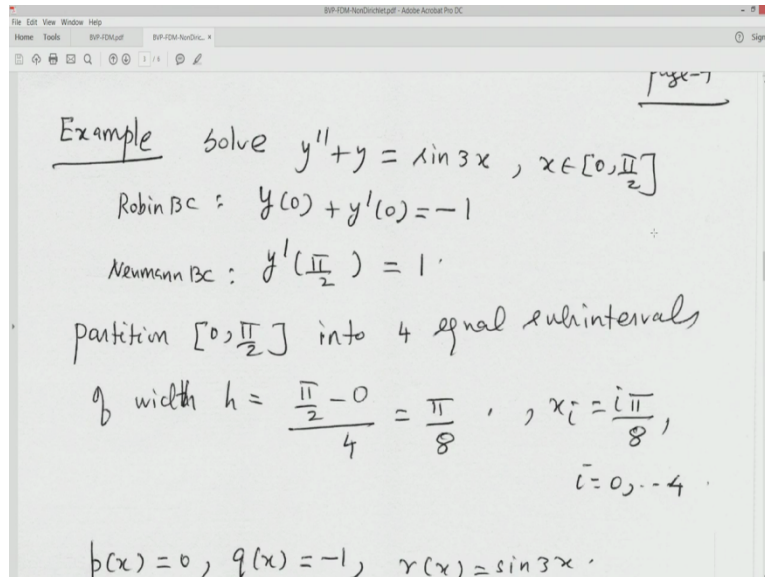 BVP-FDM-NonDirichlet.pdf - Adobe Acrobat Pro DC
File Edit View Window Help
Home Tools BVP-FDM.pdf BVP-FDM-NonDiric... × Sign
Example Solve y'' + y = sin 3x , x ∈ [0, π/2]
Robin BC : y(0) + y'(0) = -1
Neumann BC : y'(π/2) = 1 .
partition [0, π/2] into 4 equal subintervals
of width h = (π/2 - 0)/4 = π/8 . , xi = iπ/8 ,
i = 0, .. 4 .
p(x) = 0 , q(x) = -1 , r(x) = sin 3x .